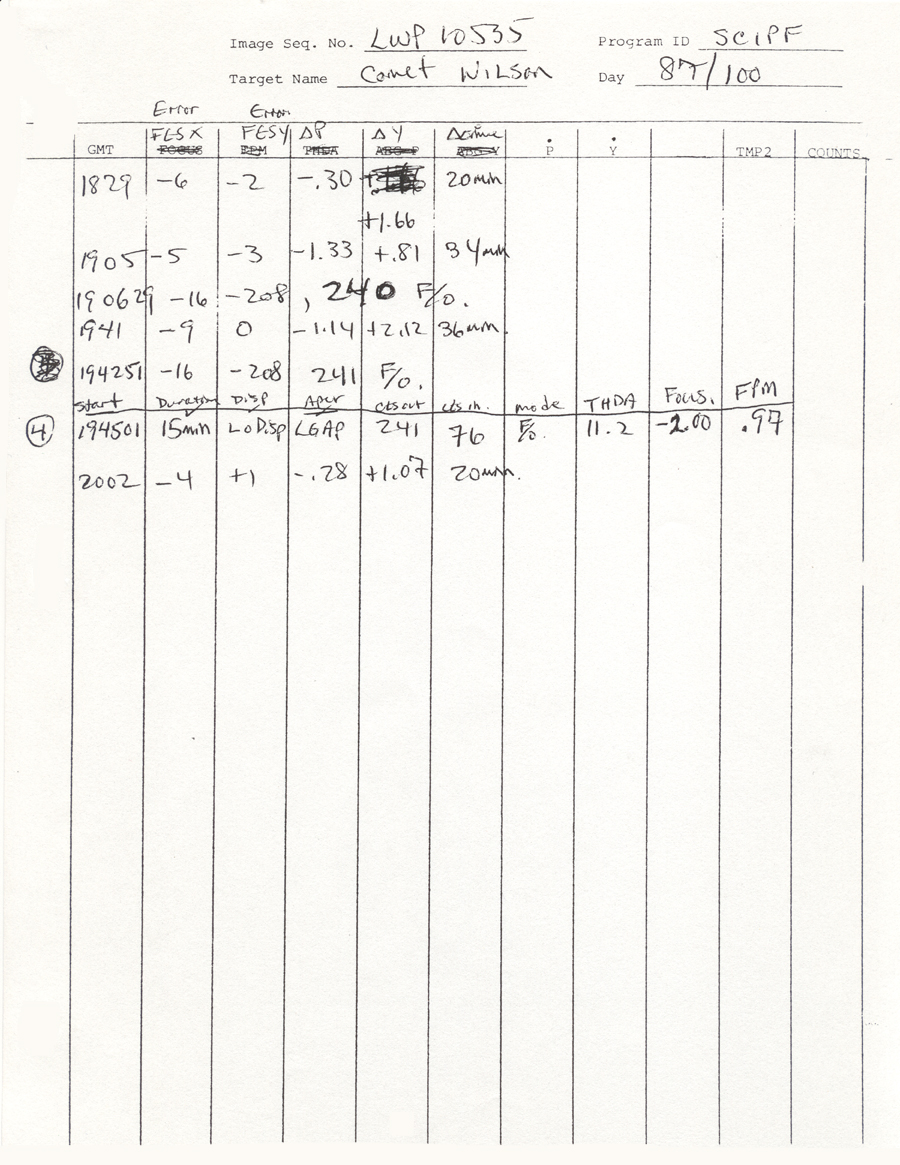 Image Seq. No. LWP 10535 Program ID SCIPF
Target Name Comet Wilson Day 87/100
Error Error
FES X FES Y ΔP ΔY Δtime
GMT FOCUS FPM THDA P Y TMP2 COUNTS
1829 -6 -2 -.30 20min
+1.66
1905 -5 -3 -1.33 +.81 34min
190629 -16 -208, 240 F/O.
1941 -9 0 -1.14 +2.12 36min.
194251 -16 -208 241 F/O.
start Duration Disp Aper cts out cts in. mode THDA Focus. FPM
4 194501 15min LoDisp LGAP 241 76 F/O. 11.2 -2.00 .97
2002 -4 +1 -.28 +1.07 20min.